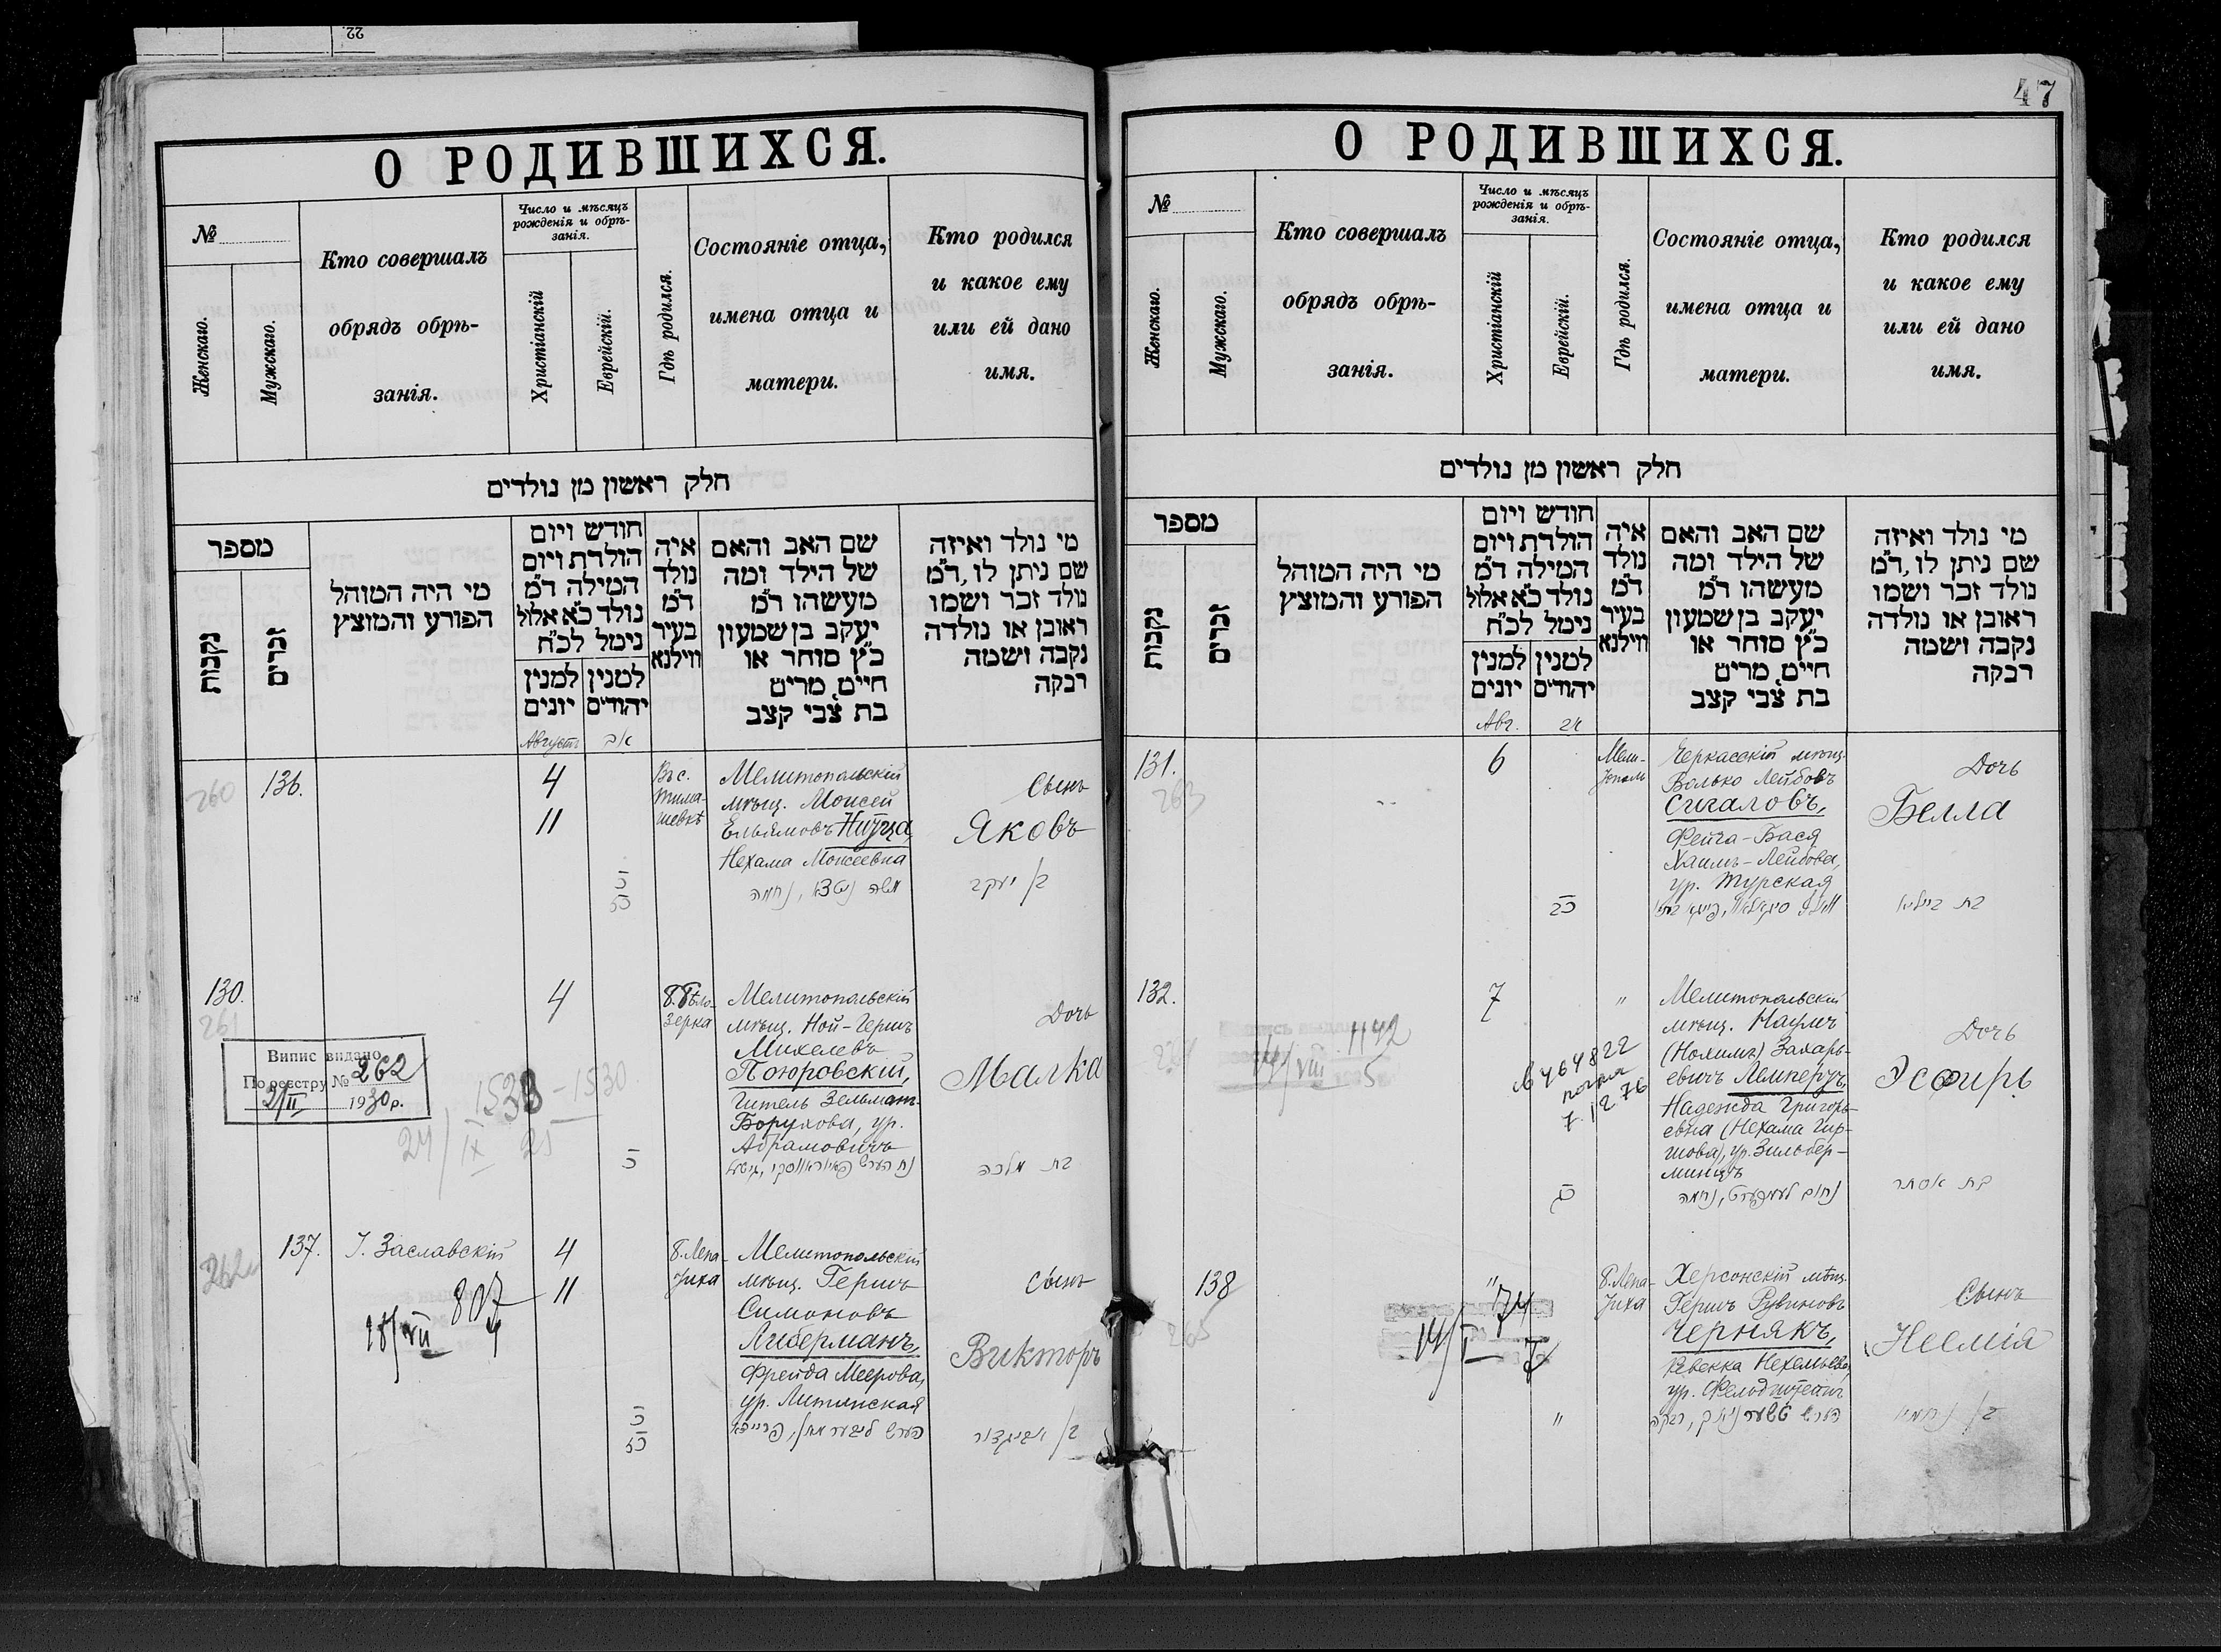 22.
О РОДИВШИХСЯ.
№
Женскаго.
Мужскаго.
Кто совершалъ
обрядъ обрѣ-
занія.
Число и мѣсяцъ
рожденія и обрѣ-
занія.
Христіанскій
Еврейскій.
Гдѣ родился.
Состояніе отца,
имена отца и
матери.
Кто родился
и какое ему
или ей дано
имя.
חלק ראשון מן נולדים
מספר
נקבות
זכרים
מי היה המוהל
הפורע והמוצץ
חודש ויום
הולדת ויום
המילה ד״מ
נולד כ״א אלול
נימל לכ״ח
למנין
יונים
למנין
יהודים
איה
נולד
ד״מ
בעיר
ווילנא
שם האב והאם
של הילד ומה
מעשהו ד״מ
יעקב בן שמעון
כ״ץ סוחר או
חיים, מרים
בת צבי קצב
מי נולד ואיזה
שם ניתן לו, ד״מ
נולד זכר ושמו
ראובן או נולדה
נקבה ושמה
רבקה
Августъ
אב
260
136.
4
11
Въ с.
Тима-
шевкѣ
Мелитопольскій
мѣщ. Моисей
Нехама Моисеевна
Сынъ
Яковъ
בן יעקב
130.
261
4
Б. Бѣло-
зерка
Мелитопольскій
мѣщ. Ной-Гершъ
Михелевъ
Поюровскій,
Гитель Зельман-
Борухова, ур.
Абрамовичъ
Дочь
Малка
בת מלכה
Випис видано
По реєстру № 262
21/II 1930 р.
24/IX 25
262
137.
І. Заславскій
4
11
807
18/VII 4
Б. Лепа-
тиха
Мелитопольскій
мѣщ. Гершъ
Симоновъ
Либерманъ,
Фрейда Меерова,
ур. Литинская
Сынъ
Викторъ
בן אביגדור
47
О РОДИВШИХСЯ.
№
Женскаго.
Мужскаго.
Кто совершалъ
обрядъ обрѣ-
занія.
Число и мѣсяцъ
рожденія и обрѣ-
занія.
Христіанскій
Еврейскій.
Гдѣ родился.
Состояніе отца,
имена отца и
матери.
Кто родился
и какое ему
или ей дано
имя.
חלק ראשון מן נולדים
מספר
נקבות
זכרים
מי היה המוהל
הפורע והמוצץ
חודש ויום
הולדת ויום
המילה ד״מ
נולד כ״א אלול
נימל לכ״ח
למנין
יונים
למנין
יהודים
איה
נולד
ד״מ
בעיר
ווילנא
שם האב והאם
של הילד ומה
מעשהו ד״מ
יעקב בן שמעון
כ״ץ סוחר או
חיים, מרים
בת צבי קצב
מי נולד ואיזה
שם ניתן לו, ד״מ
נולד זכר ושמו
ראובן או נולדה
נקבה ושמה
רבקה
Авг.
אב
131.
263
6
Мели-
тополь
Черкасскій мѣщ.
Волько Лейбовъ
Сигаловъ,
Фейга-Бася
Хаимъ-Лейбова,
ур. Турская
Дочь
Белла
בת ביילא
132.
7
"
1142
14/VIII 5
Мелитопольскій
мѣщ. Наумъ
(Нохимъ) Захарь-
евичъ Лемперъ,
Надежда Григорь-
евна (Нехама Гир-
шова), ур. Зильбер-
минцъ
Дочь
Эсфирь
בת אסתר
265
138
"
74
14/I 7
Б. Лепа-
тиха
Херсонскій мѣщ.
Гершъ Рувиновъ
Чернякъ,
ур.
Сынъ
Неемія
"
בן נחמיא